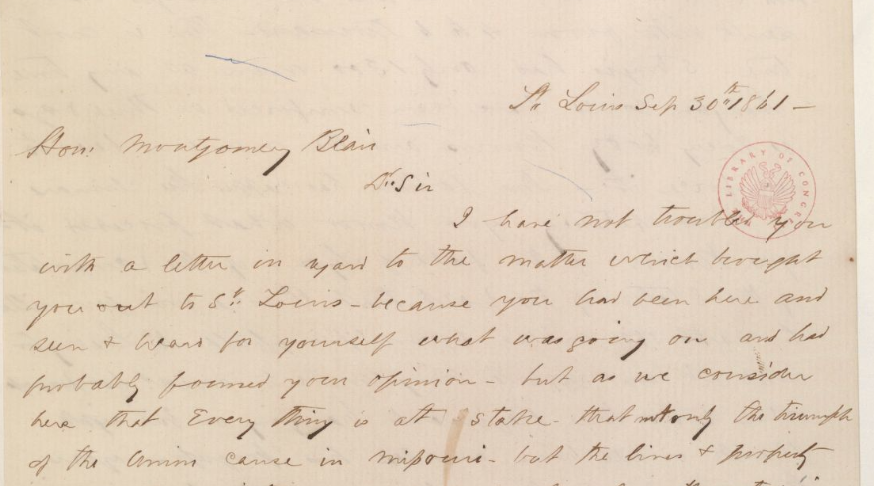 St Louis Sep 30th 1861 –
Hon: Montgomery Blair
Dr Sir
I have not troubled you
with a letter in regard to the matter which brought
you out to St. Louis – because you had been here and
seen & heard for yourself what was going on and had
probably formed your opinion – but as we consider
here that Every thing is at stake – that not only the triumph
of the Union cause in Missouri – but the lives & property
LIBRARY OF CONGRESS